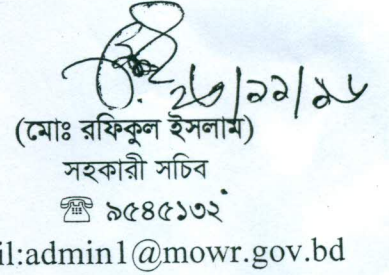 (মোঃ রফিকুল ইসলাম)
সহকারী সচিব
☎ ৯৫৪৫১৩২
il:admin1@mowr.gov.bd